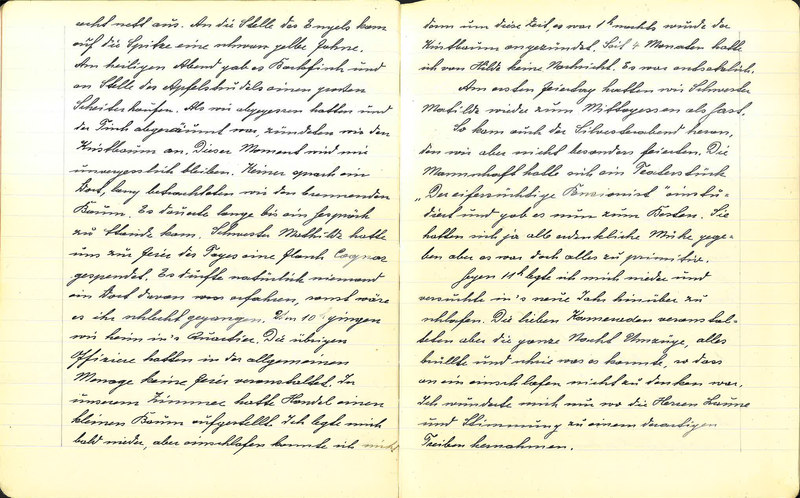 recht nett aus. An die Stelle des Engels kam
auf die Spitze eine schwarz gelbe Fahne.
Am heiligen Abend gab es Backfisch und
an Stelle des Apfelstrudels einen grossen
Scheiterhaufen. Als wir abgegessen hatten und
der Tisch abgeräumt war, zündeten wir den
Kristbaum an. Dieser Moment wird mir
unvergesslich bleiben. Keiner sprach ein
Wort, lang betrachteten wir den brennenden
Baum. Es dauerte lange bis ein Gespräch
zu Stande kam. Schwester Mathilde hatte
uns zur Feier des Tages eine Flasche Cognac
gespendet. Es durfte natürlich niemand
ein Wort davon erfahren, sonst wäre
es ihr schlecht gegangen. Um 10h gingen
wir heim in's Quartier. Die übrigen
Offiziere hatten in der allgemeinen
Menage keine Feier veranstaltet. In
unserem Zimmer hatte Handel einen
kleinen Baum aufgestellt. Ich legte mich
bald nieder, aber einschlafen konnte ich nicht
denn um diese Zeit, es war 1h nachts wurde der
Kristbaum angezündet. Seit 4 Monaten hatte
ich von Hilde keine Nachricht. Es war entsetzlich.
Am ersten Feiertag hatten wir Schwester
Mathilde wieder zum Mittagessen als Gast.
So kam auch der Silvesterabend heran,
den wir aber nicht besonders feierten. Die
Mannschaft hatte sich ein Teaterstück
„Der eifersüchtige Pensionist" einstu-
diert und gab es nun zum Besten. Sie
hatten sich ja alle erdenkliche Mühe gege-
ben aber es war doch alles zu primitiv.
Gegen 11h legte ich mich nieder und
versuchte in's neue Jahr hinüber zu
schlafen. Die lieben Kameraden veranstal-
teten aber die ganze Nacht Umzüge, alles
brüllte und schrie was es konnte, so dass
an ein einschlafen nicht zu denken war.
Ich wunderte mich nur wo die Herren Laune
und Stimmung zu einem derartigen
Treiben hernahmen.